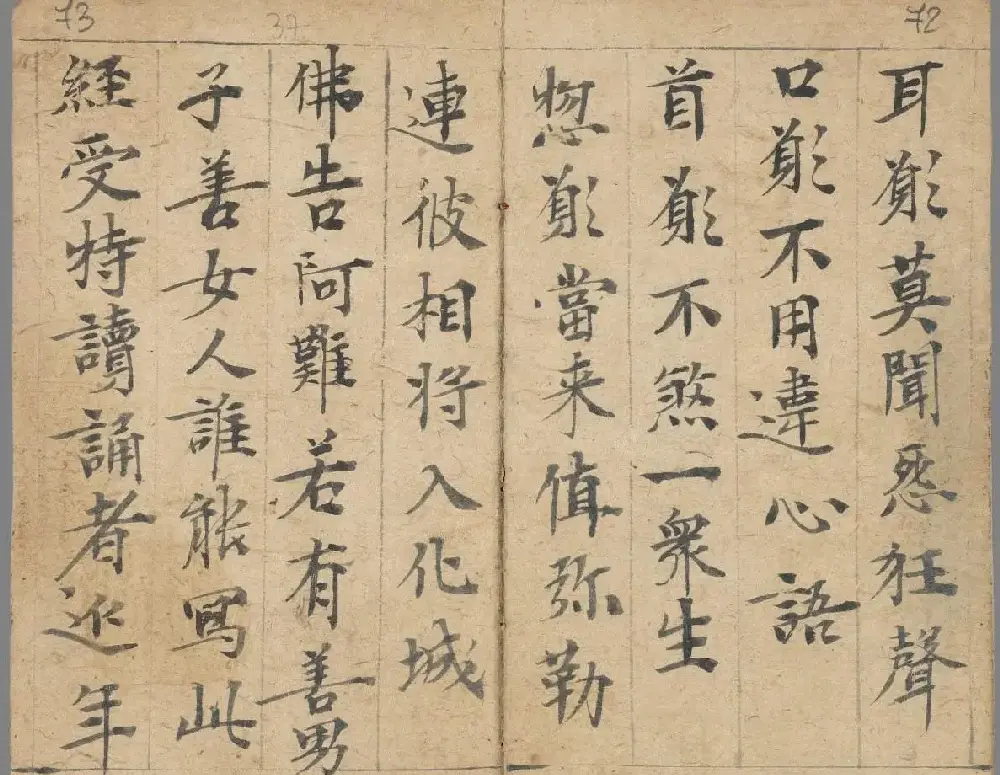 72
耳願莫聞惡狂聲
口願不用違心語
首願不煞一衆生
惣願當来值弥勒
73
37
連彼相将入化城
佛告阿難若有善男
子善女人誰能寫此
経受特讀誦者延年